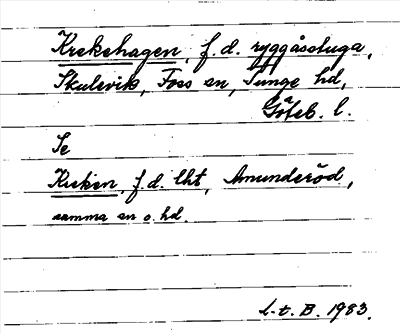 Krekehagen, f.d. ryggåsstuga,
Skulevik, Foss sn, Tunge hd,
Göteb. l.
Se
Kreken, f.d. lht, Amunderöd,
samma sn o. hd.
L-t. B. 1983.